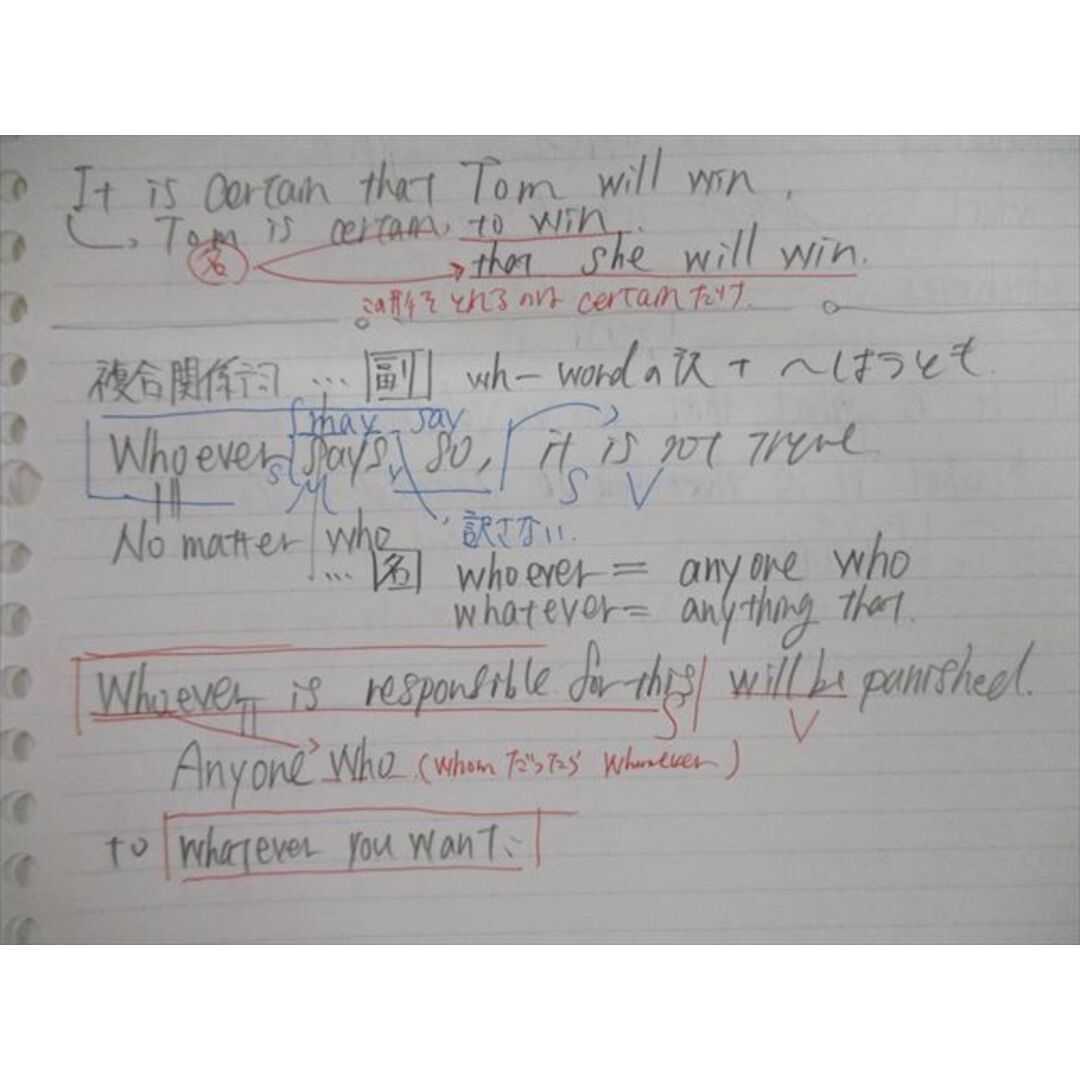 It is certain that Tom will win.
Tom is certain to win.
名 that she will win.
この形をとれるのは certain だけ.
複合関係詞 … 副 wh-word の訳 + 〜しようとも
may say
Whoever says so, it is not true.
S V M S V
No matter who 訳さない.
… 名 whoever = anyone who
whatever = anything that.
Whoever is responsible for this will be punished.
S V
Anyone who (whom だったら whomever)
to whatever you want.